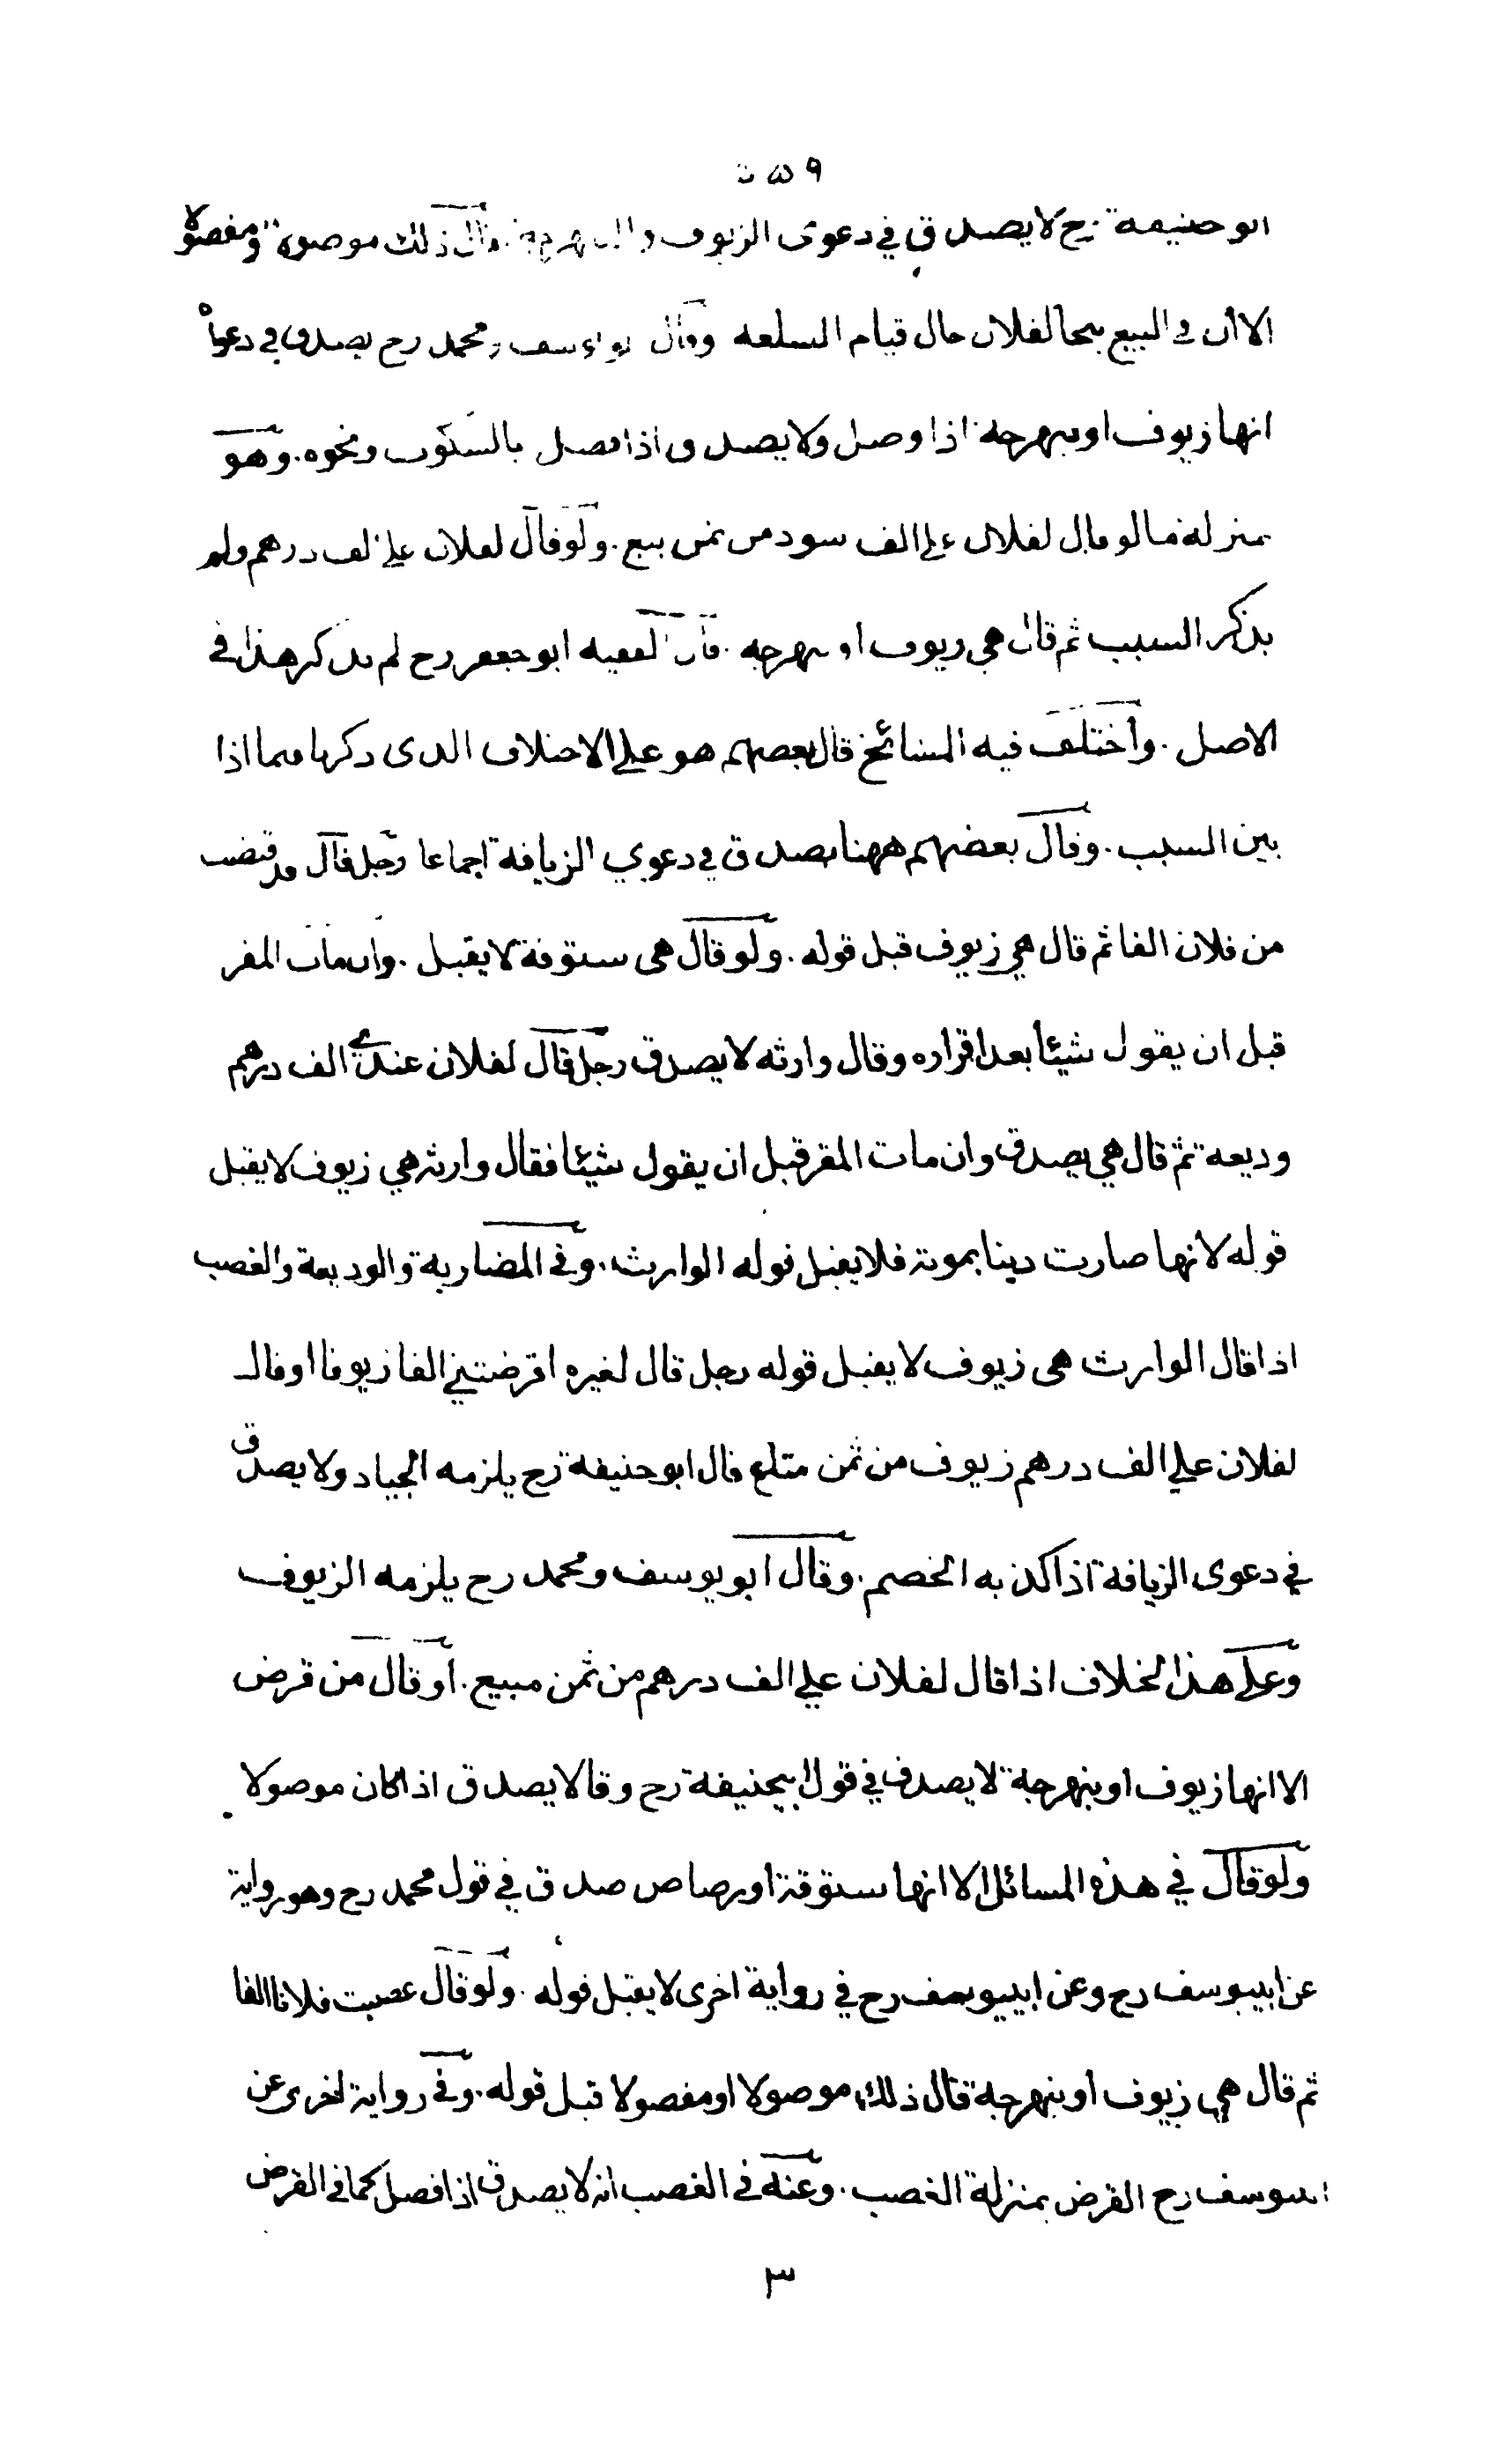 ابو حنيفة رح لا يصدق في دعوى الزيوف و قال ذلك موصولا و مفصولا
الا أن في البيع يتحالفان حال قيام السلعه وقال ابو يوسف و محمد رح يصدق في دعواه
انها زيوف او بنهرجة اذا وصل ولا يصدق اذا فصل بالسكوت ونحوه. وهو
بمنزلة ما لو قال لفلان علي الف سود من ثمن بيع. ولو قال لفلان علي الف درهم ولم
يذكر السبب ثم قال هي زيوف او بنهرجه. قال الفقيه ابو جعفر رح لم يذكر هذا في
الاصل. واختلف فيه المشائخ قال بعضهم هو على الاختلاف الذى ذكرنا فيما اذا
بين السبب. وقال بعضهم ههنا يصدق في دعوي الزيافة اجماعا رجل قال قد قبضت
من فلان الفا ثم قال هي زيوف قبل قوله. ولو قال هى ستوقة لا يقبل. وان مات المقر
قبل ان يقول شيئا بعد اقراره وقال وارثه لا يصدق رجل قال لفلان عندي الف درهم
وديعة ثم قال هي يصدق وان مات المقر قبل ان يقول شيئا فقال وارثه هي زيوف لا يقبل
قوله لانها صارت دينا بموته فلا يقبل قوله الوارث. وفي المضاربة والوديعة والغصب
اذا قال الوارث هى زيوف لا يقبل قوله رجل قال لغيره اقرضتني الفا زيوفا او قال
لفلان علي الف درهم زيوف من ثمن متاع قال ابو حنيفة رح يلزمه الجياد ولا يصدق
في دعوى الزيافة اذا كذبه الخصم. وقال ابو يوسف ومحمد رح يلزمه الزيوف
وعلى هذا الخلاف اذا قال لفلان علي الف درهم من ثمن مبيع. او قال من قرض
الا انها زيوف او بنهرجة لا يصدق في قول ابيحنيفة رح وقالا يصدق اذا كان موصولا
ولو قال في هذه المسائل الا انها ستوقة او رصاص صدق في قول محمد رح وهو رواية
عن ابييوسف رح وعن ابييوسف رح في رواية اخرى لا يقبل قوله. ولو قال غصبت فلانا الفا
ثم قال هي زيوف او بنهرجة قال ذلك موصولا او مفصولا قبل قوله. وفي رواية اخرى عن
ابييوسف رح القرض بمنزلة الغصب. وعنه في الغصب انه لا يصدق اذا فصل كما في القرض
٣